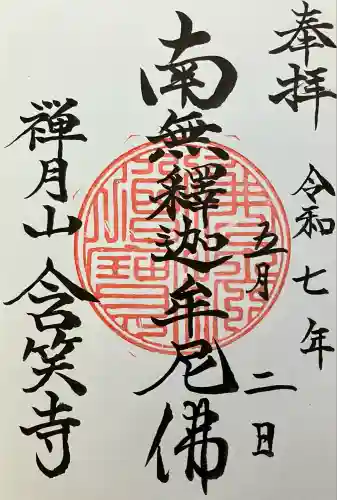 奉拝
令和七年
五月二日
南無釋迦牟尼佛
禅月山 含笑寺